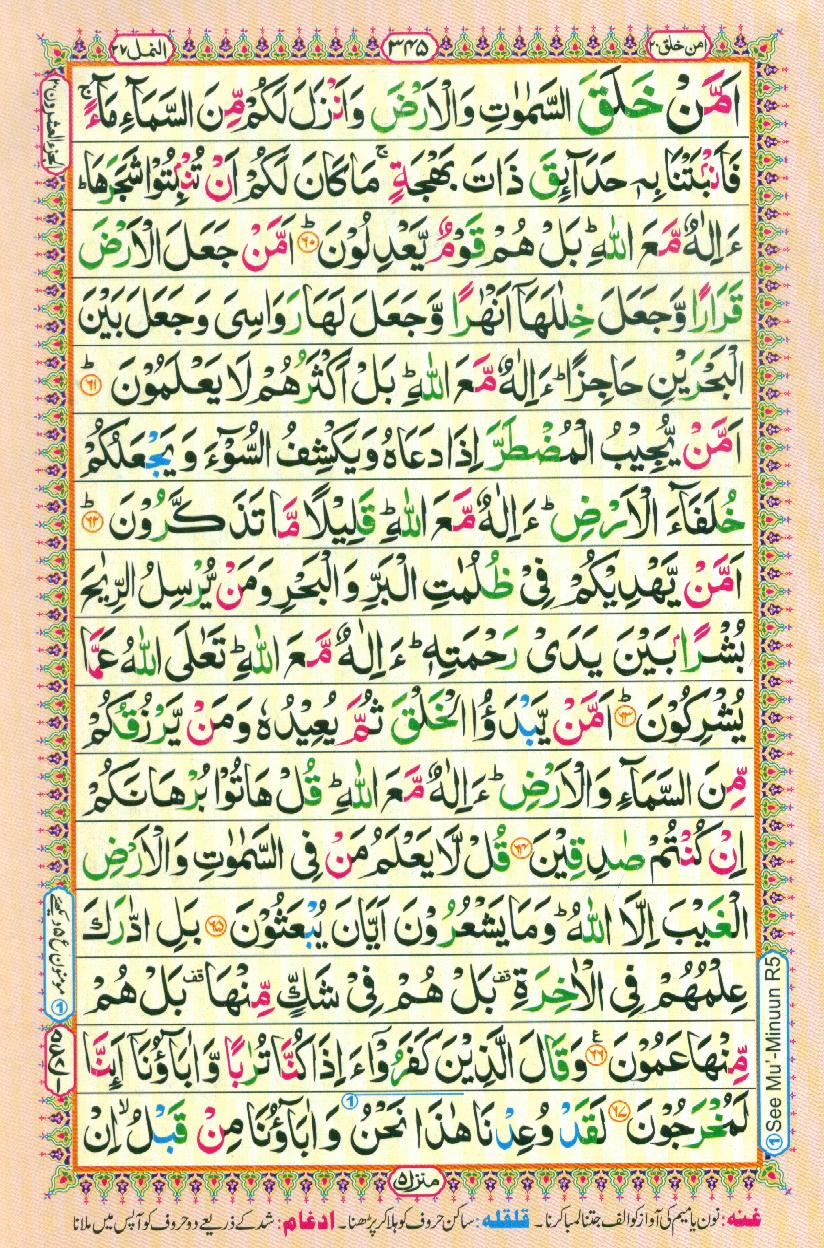 امن خلق ۲۰
۳۴۵
النمل ۲۷
اَمَّنْ خَلَقَ السَّمٰوٰتِ وَالْاَرْضَ وَاَنْزَلَ لَكُمْ مِّنَ السَّمَآءِ مَآءً ۚ
فَاَنْۢبَتْنَا بِهٖ حَدَآئِقَ ذَاتَ بَهْجَةٍ ۚ مَا كَانَ لَكُمْ اَنْ تُنْۢبِتُوْا شَجَرَهَا ؕ
ءَاِلٰهٌ مَّعَ اللّٰهِ ؕ بَلْ هُمْ قَوْمٌ يَّعْدِلُوْنَ ؕ ﴿۶۰﴾ اَمَّنْ جَعَلَ الْاَرْضَ
قَرَارًا وَّجَعَلَ خِلٰلَهَاۤ اَنْهٰرًا وَّجَعَلَ لَهَا رَوَاسِىَ وَجَعَلَ بَيْنَ
الْبَحْرَيْنِ حَاجِزًا ؕ ءَاِلٰهٌ مَّعَ اللّٰهِ ؕ بَلْ اَكْثَرُهُمْ لَا يَعْلَمُوْنَ ؕ ﴿۶۱﴾
اَمَّنْ يُّجِيْبُ الْمُضْطَرَّ اِذَا دَعَاهُ وَيَكْشِفُ السُّوْٓءَ وَيَجْعَلُكُمْ
خُلَفَآءَ الْاَرْضِ ؕ ءَاِلٰهٌ مَّعَ اللّٰهِ ؕ قَلِيْلًا مَّا تَذَكَّرُوْنَ ؕ ﴿۶۲﴾
اَمَّنْ يَّهْدِيْكُمْ فِىْ ظُلُمٰتِ الْبَرِّ وَالْبَحْرِ وَمَنْ يُّرْسِلُ الرِّيٰحَ
بُشْرًۢا بَيْنَ يَدَىْ رَحْمَتِهٖ ؕ ءَاِلٰهٌ مَّعَ اللّٰهِ ؕ تَعٰلَى اللّٰهُ عَمَّا
يُشْرِكُوْنَ ؕ ﴿۶۳﴾ اَمَّنْ يَّبْدَؤُا الْخَلْقَ ثُمَّ يُعِيْدُهٗ وَمَنْ يَّرْزُقُكُمْ
مِّنَ السَّمَآءِ وَالْاَرْضِ ؕ ءَاِلٰهٌ مَّعَ اللّٰهِ ؕ قُلْ هَاتُوْا بُرْهَانَكُمْ
اِنْ كُنْتُمْ صٰدِقِيْنَ ﴿۶۴﴾ قُلْ لَّا يَعْلَمُ مَنْ فِى السَّمٰوٰتِ وَالْاَرْضِ
الْغَيْبَ اِلَّا اللّٰهُ ؕ وَمَا يَشْعُرُوْنَ اَيَّانَ يُبْعَثُوْنَ ﴿۶۵﴾ بَلِ ادّٰرَكَ
عِلْمُهُمْ فِى الْاٰخِرَةِ ۫ بَلْ هُمْ فِىْ شَكٍّ مِّنْهَا ۫ بَلْ هُمْ
مِّنْهَا عَمُوْنَ ﴿۶۶﴾ وَقَالَ الَّذِيْنَ كَفَرُوْۤا ءَاِذَا كُنَّا تُرٰبًا وَّاٰبَآؤُنَاۤ اَئِنَّا
لَمُخْرَجُوْنَ ﴿۶۷﴾ لَقَدْ وُعِدْنَا هٰذَا نَحْنُ وَاٰبَآؤُنَا مِنْ قَبْلُ ۙ اِنْ
الجزء العشرون ۲۰
① See Mu'-Minuun R5
منزل ۵
غنه: نون یا میم کی آواز کو الف جتنا لمبا کرنا۔ قلقله: ساکن حروف کو ہلا کر پڑھنا۔ ادغام: شد کے ذریعے دو حروف کو آپس میں ملانا